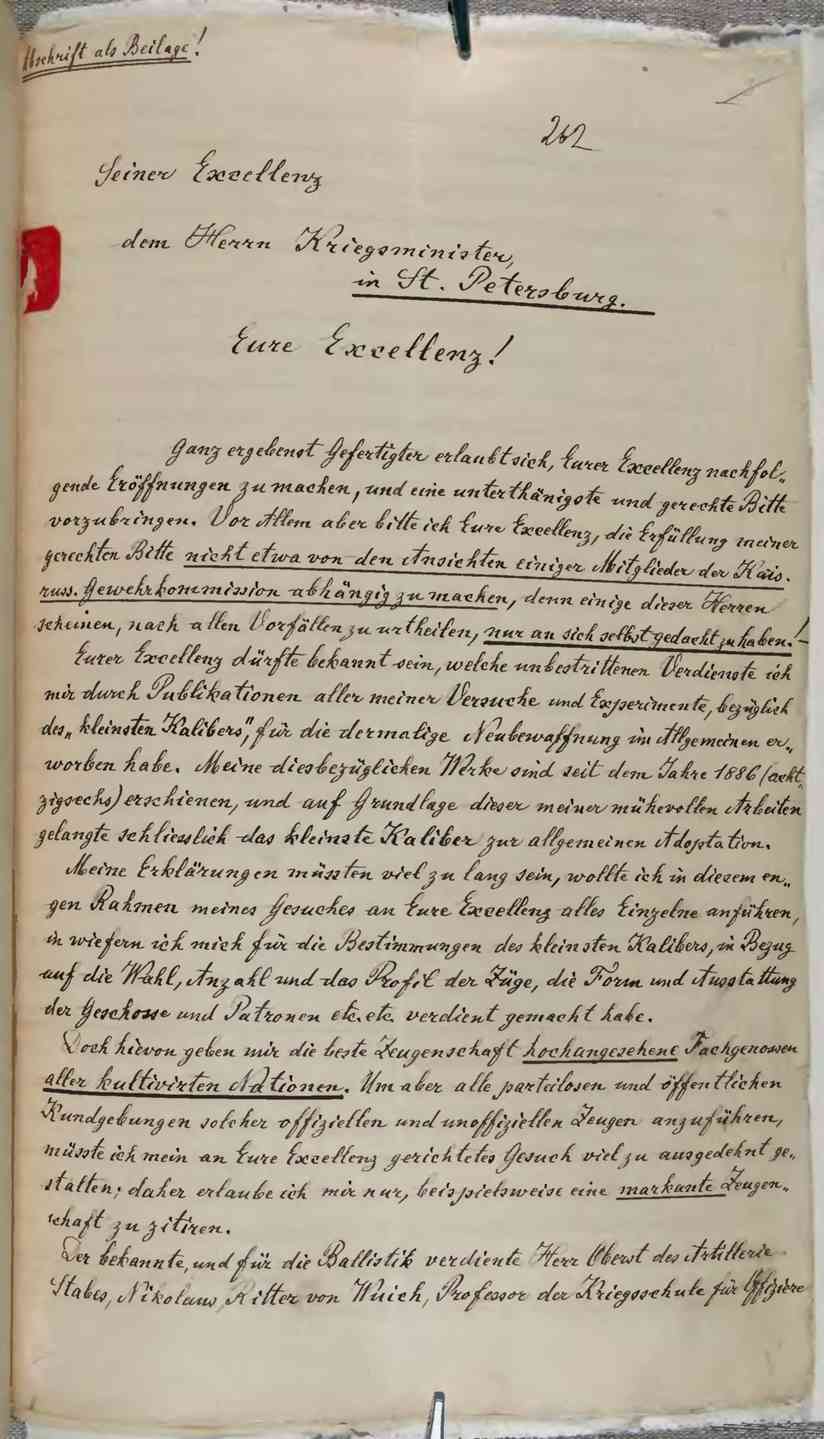 Abschrift als Beilage!
262
Seiner Excellenz
dem Herrn Kriegsminister,
in St. Petersburg.
Eure Excellenz!
Ganz ergebenst Gefertigter erlaubt sich, Eurer Excellenz nachfol„
gende Eröffnungen zu machen, und eine unterthänigste und gerechte Bitte
vorzubringen. Vor Allem aber bitte ich Eure Excellenz, die Erfüllung meiner
gerechten Bitte nicht etwa von den Ansichten einiger Mitglieder der Kais.
russ. Gewehrkommission abhängig zu machen, denn einige dieser Herren
scheinen, nach allen Vorfällen zu urtheilen, nur an sich selbst gedacht zu haben.!–
Eurer Excellenz dürfte bekannt sein, welche unbestrittenen Verdienste ich
mir durch Publikationen aller meiner Versuche und Experimente, bezüglich
des „kleinsten Kalibers", für die dermalige Neubewaffnung im Allgemeinen er„
worben habe. Meine diesbezüglichen Werke sind seit dem Jahre 1886 (acht„
zigsechs) erschienen, und auf Grundlage dieser meiner mühevollen Arbeiten
gelangte schliesslich das kleinste Kaliber zur allgemeinen Adoptation.
Meine Erklärungen müssten viel zu lang sein, wollte ich in diesem en„
gen Rahmen meines Gesuches an Eure Excellenz alles Einzelne anführen,
in wiefern ich mich für die Bestimmungen des kleinsten Kalibers, in Bezug
auf die Wahl, Anzahl und das Profil der Züge, die Form und Ausstattung
der Geschosse und Patronen etc. etc. verdient gemacht habe.
Doch hievon geben mir die beste Zeugenschaft hochangesehene Fachgenossen
aller kultivirten Nationen. Um aber alle parteilosen und öffentlichen
Kundgebungen solcher offiziellen und unoffiziellen Zeugen anzuführen,
müsste ich mein an Eure Excellenz gerichtetes Gesuch viel zu ausgedehnt ge„
stalten; daher erlaube ich mir nur, beispielsweise eine markante Zeugen„
schaft zu zitiren.
Der bekannte, und für die Ballistik verdiente Herr Oberst des Artillerie
Stabes, Nikolaus Ritter von Wuich, Professor der Kriegsschule für Offiziere